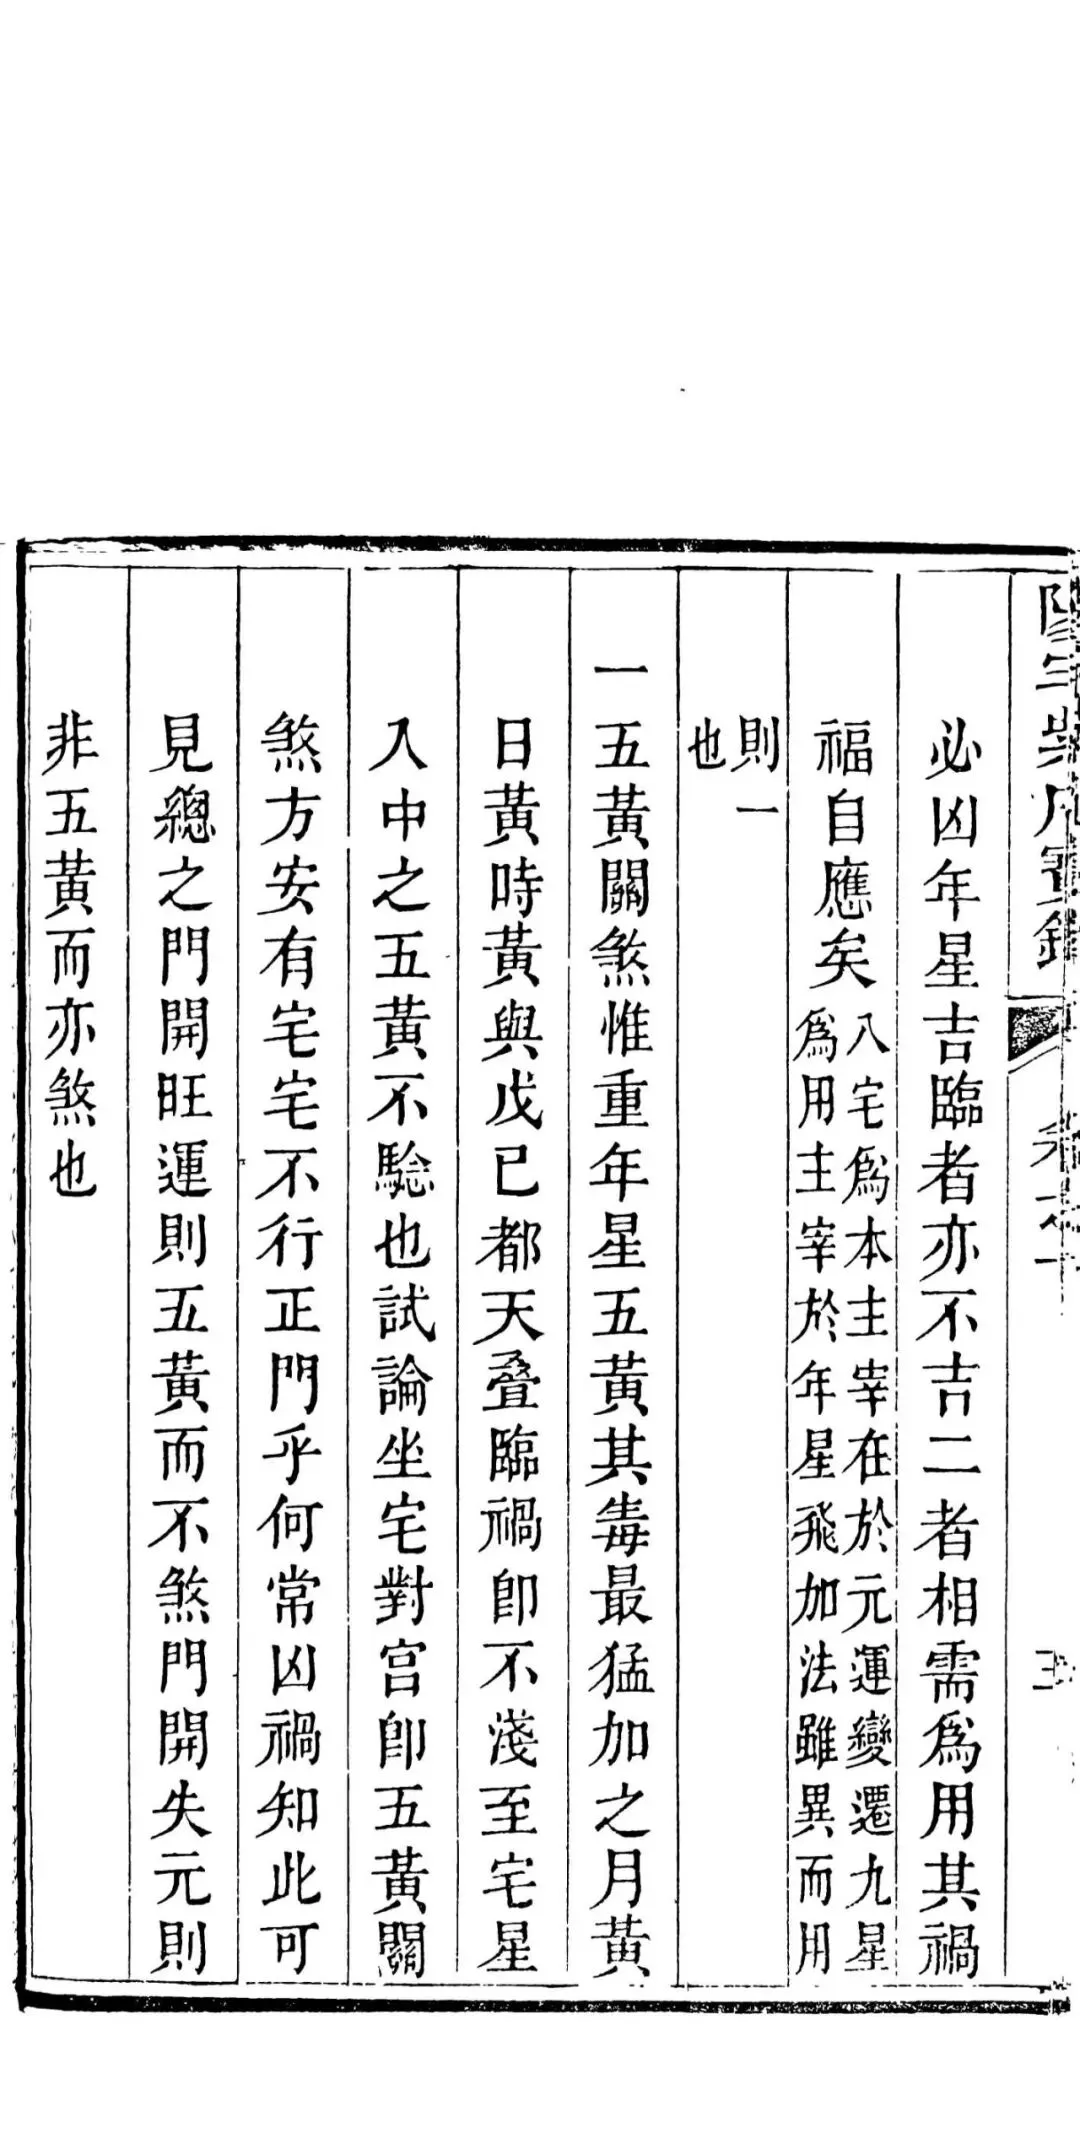 必凶年星吉臨者亦不吉二者相需爲用其禍
福自應矣
八宅爲本主宰在於元運變遷九星
爲用主宰於年星飛加法雖異而用
則一
也
一五黃關煞惟重年星五黃其毒最猛加之月黃
日黃時黃與戊已都天叠臨禍卽不淺至宅星
入中之五黃不騐也試論坐宅對宮卽五黃關
煞方安有宅宅不行正門乎何常凶禍知此可
見總之門開旺運則五黃而不煞門開失元則
非五黃而亦煞也